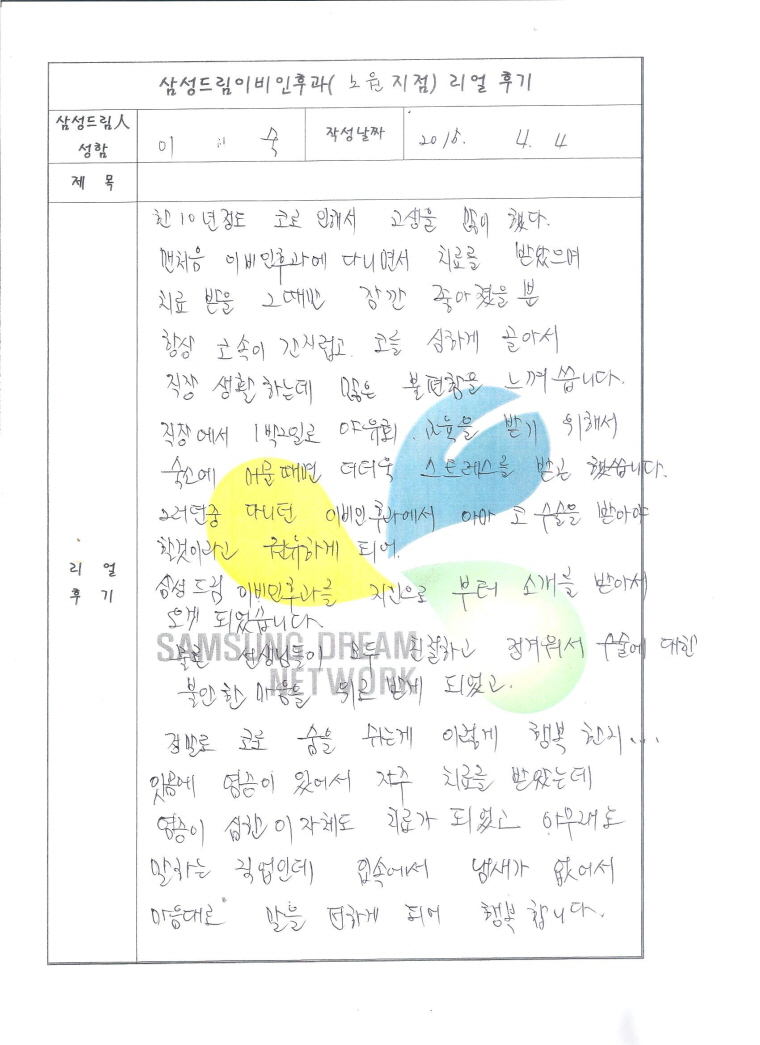 삼성드림이비인후과( 노원 지점) 리얼 후기
삼성드림人 성함
이 숙
작성날짜
2015. 4. 4
제 목
리 얼 후 기
한 10년정도 코로 인해서 고생을 많이 했다.
맨처음 이비인후과에 다니면서 치료를 받았으며
치료 받을 그때만 잠깐 좋아졌을 뿐
항상 코속이 간지럽고. 코를 심하게 골아서
직장 생활 하는데 많은 불편함을 느껴씁니다.
직장에서 1박2일로 야유회. 교육을 받기 위해서
숙소에 머물때면 더더욱 스트레스를 받곤 했씁니다.
그러던중 다니던 이비인후과에서 아마 코 수술을 받아야
할것이라고 권유하게 되어.
삼성드림 이비인후과를 지인으로 부터 소개를 받아서
오게 되었습니다.
물론 선생님들이 모두 친절하고 정겨워서 수술에 대한
불안한 마음을 위로 받게 되었고.
정말로 코로 숨을 쉬는게 이렇게 행복한지...
잇몸에 염증이 있어서 자주 치료를 받았는데
염증이 심한 이 자체도 치료가 되었고 아무래도
말하는 직업인데 입속에서 냄새가 없어서
마음대로 말을 편하게 되어 행복합니다.
SAMSUNG DREAM
NETWORK